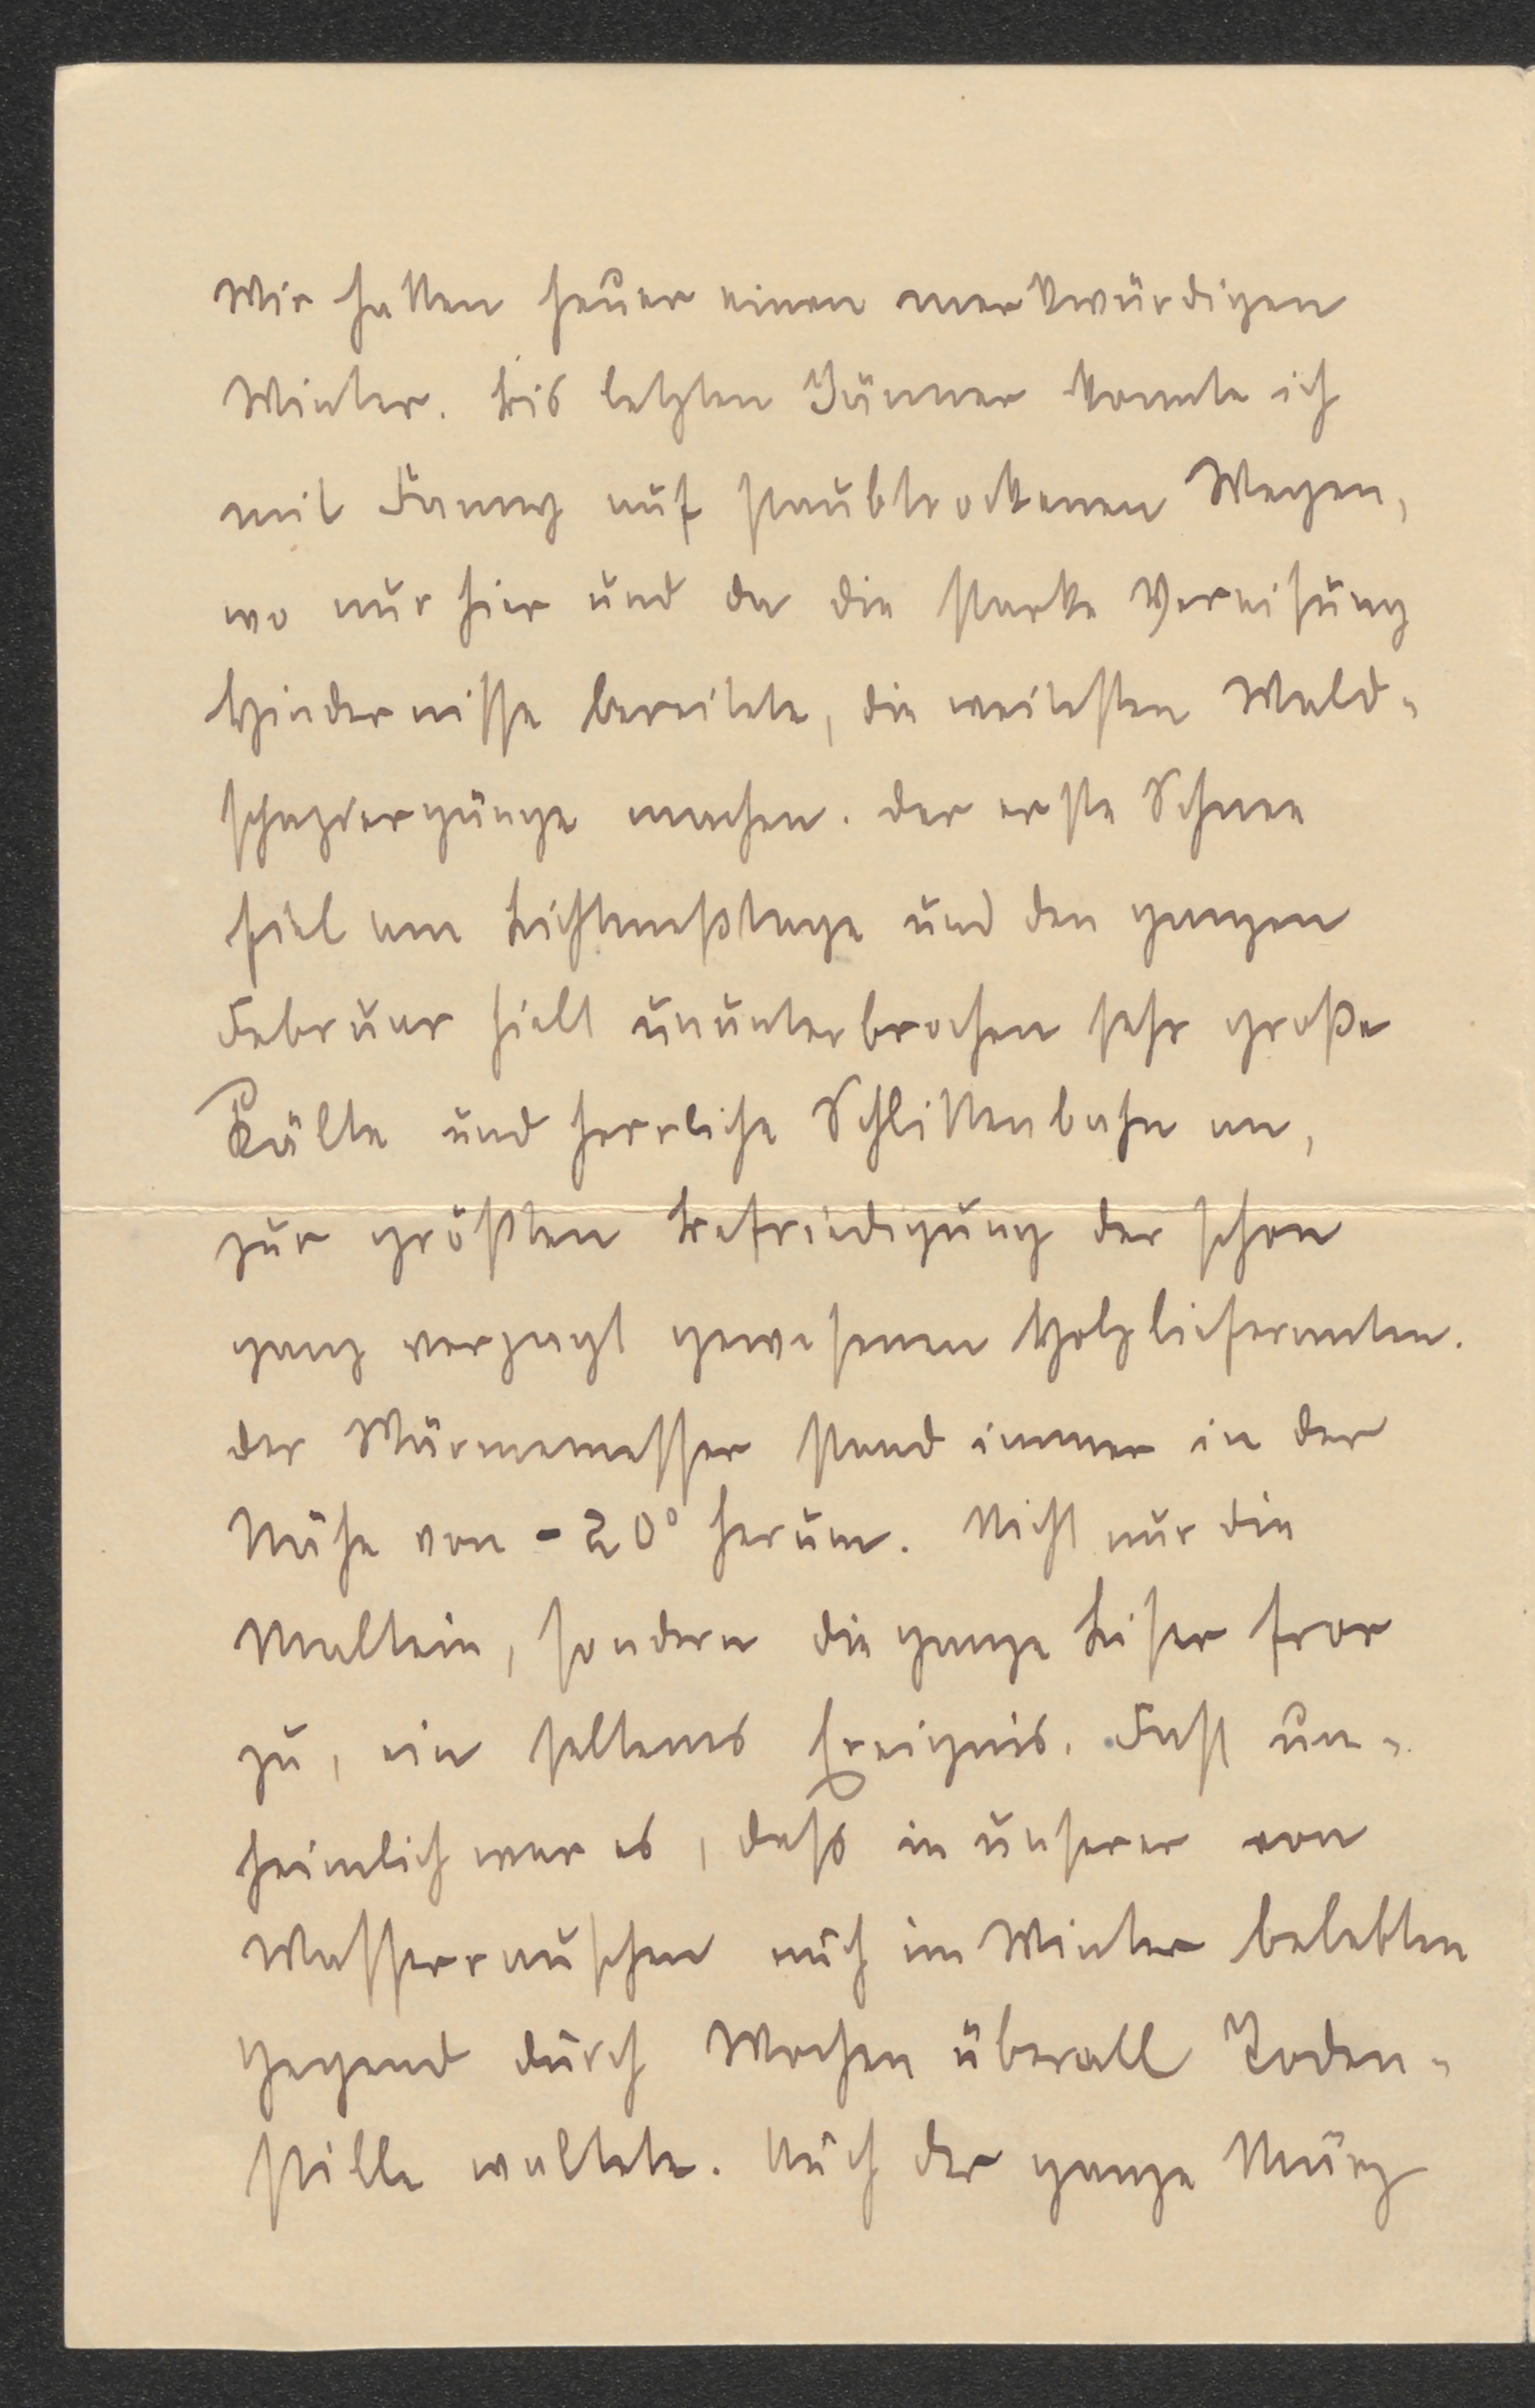 Wir hatten heuer einen merkwürdigen
Winter. Bis letzten Jänner konnte ich
mit Fanny auf staubtrockenen Wegen,
wo nur hier und da die starke Vereisung
Hindernisse bereitete, die weitesten Wald-
spaziergänge machen. Der erste Schnee
fiel am Lichtmeßtage und den ganzen
Februar hielt ununterbrochen sehr große
Kälte und herrliche Schlittenbahn an,
zur größten Befriedigung der schon
ganz verzagt gewesenen Holzlieferanten.
Der Wärmemesser stand immer in der
Nähe von -20° herum. Nicht nur die
Maltein, sondern die ganze Lieser fror
zu, ein seltenes Ereignis. Fast un-
heimlich war es, daß in unserer von
Wasserrauschen auch im Winter belebten
Gegend durch Wochen überall Toden-
stille waltete. Auch der ganze März